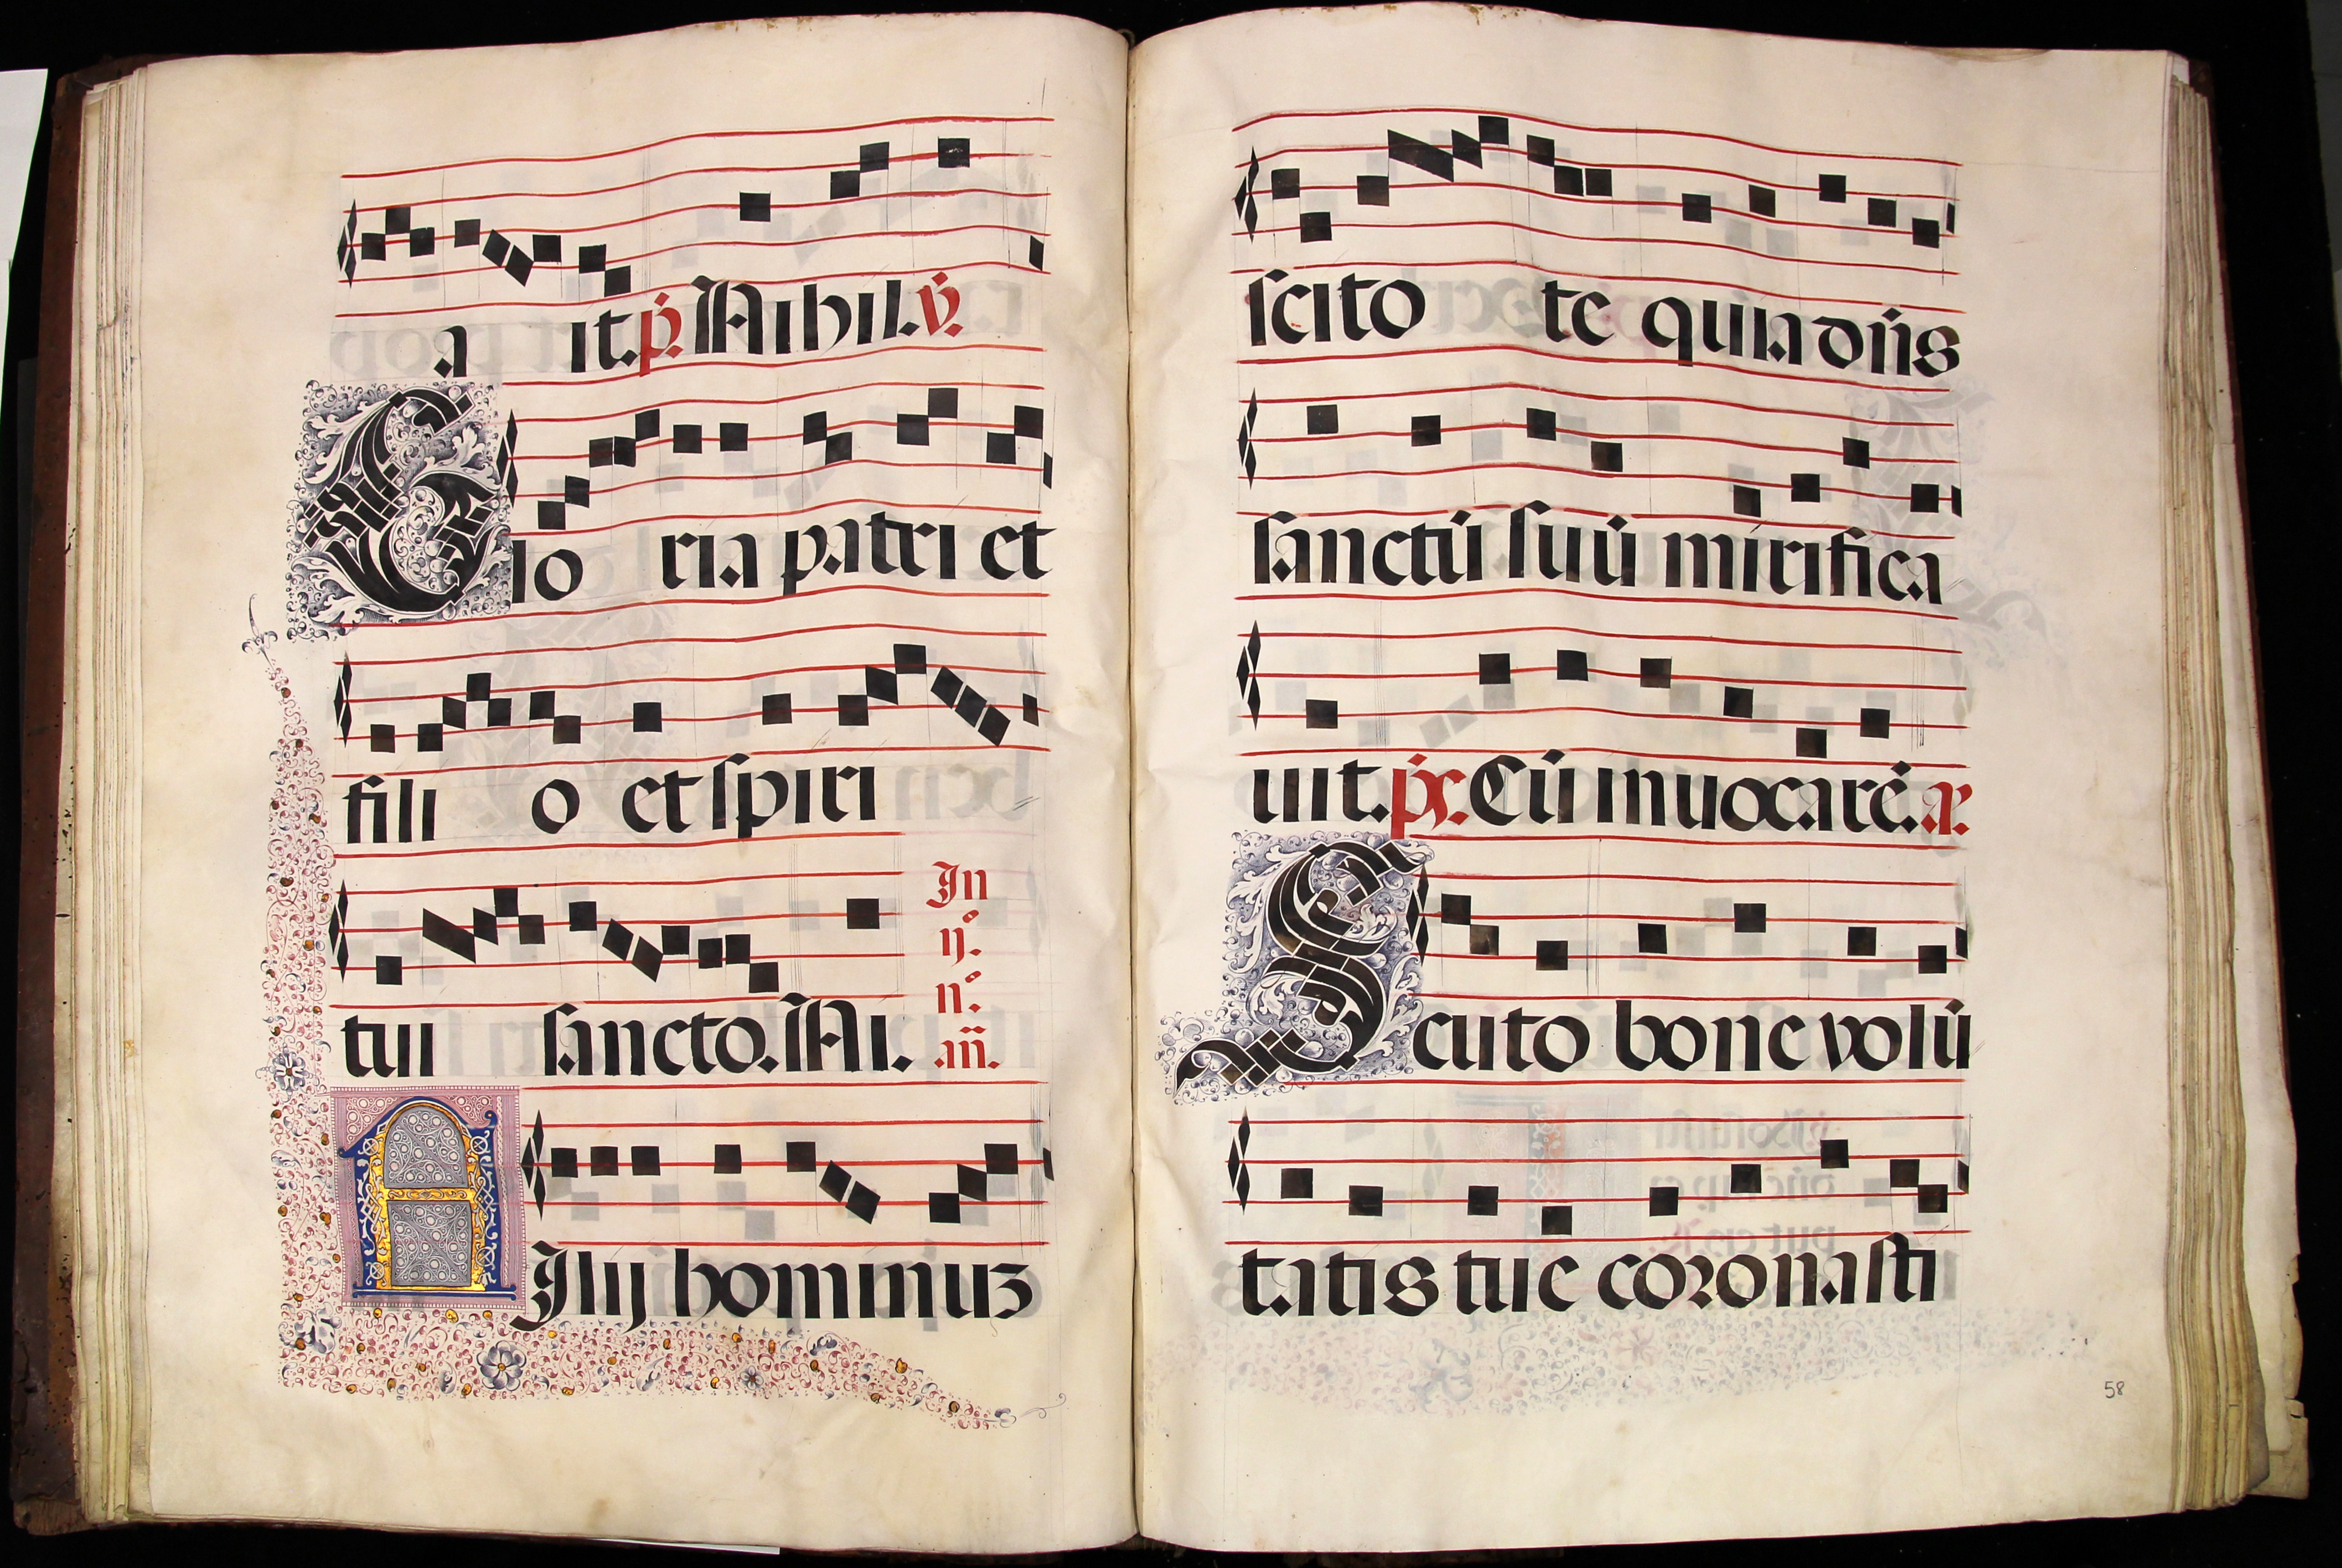 a it. p̄. Nihil. v̄.
Glo ria patri et
fili o et spiri
tui sancto. Ni. In
ij.
n.
añ.
Filij hominuʒ
scito te quia dn̄s
sanctū suū mirifica
uit. ps. Cū inuocarē. a.
Scuto bone volū
tatis tue coronasti
58